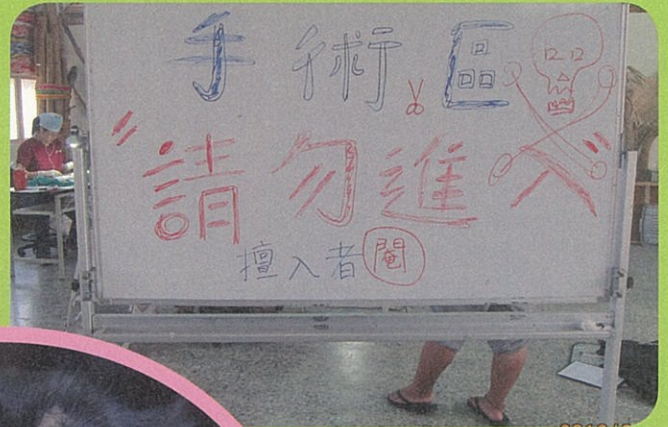 手術區
"請勿進入"
擅入者閹